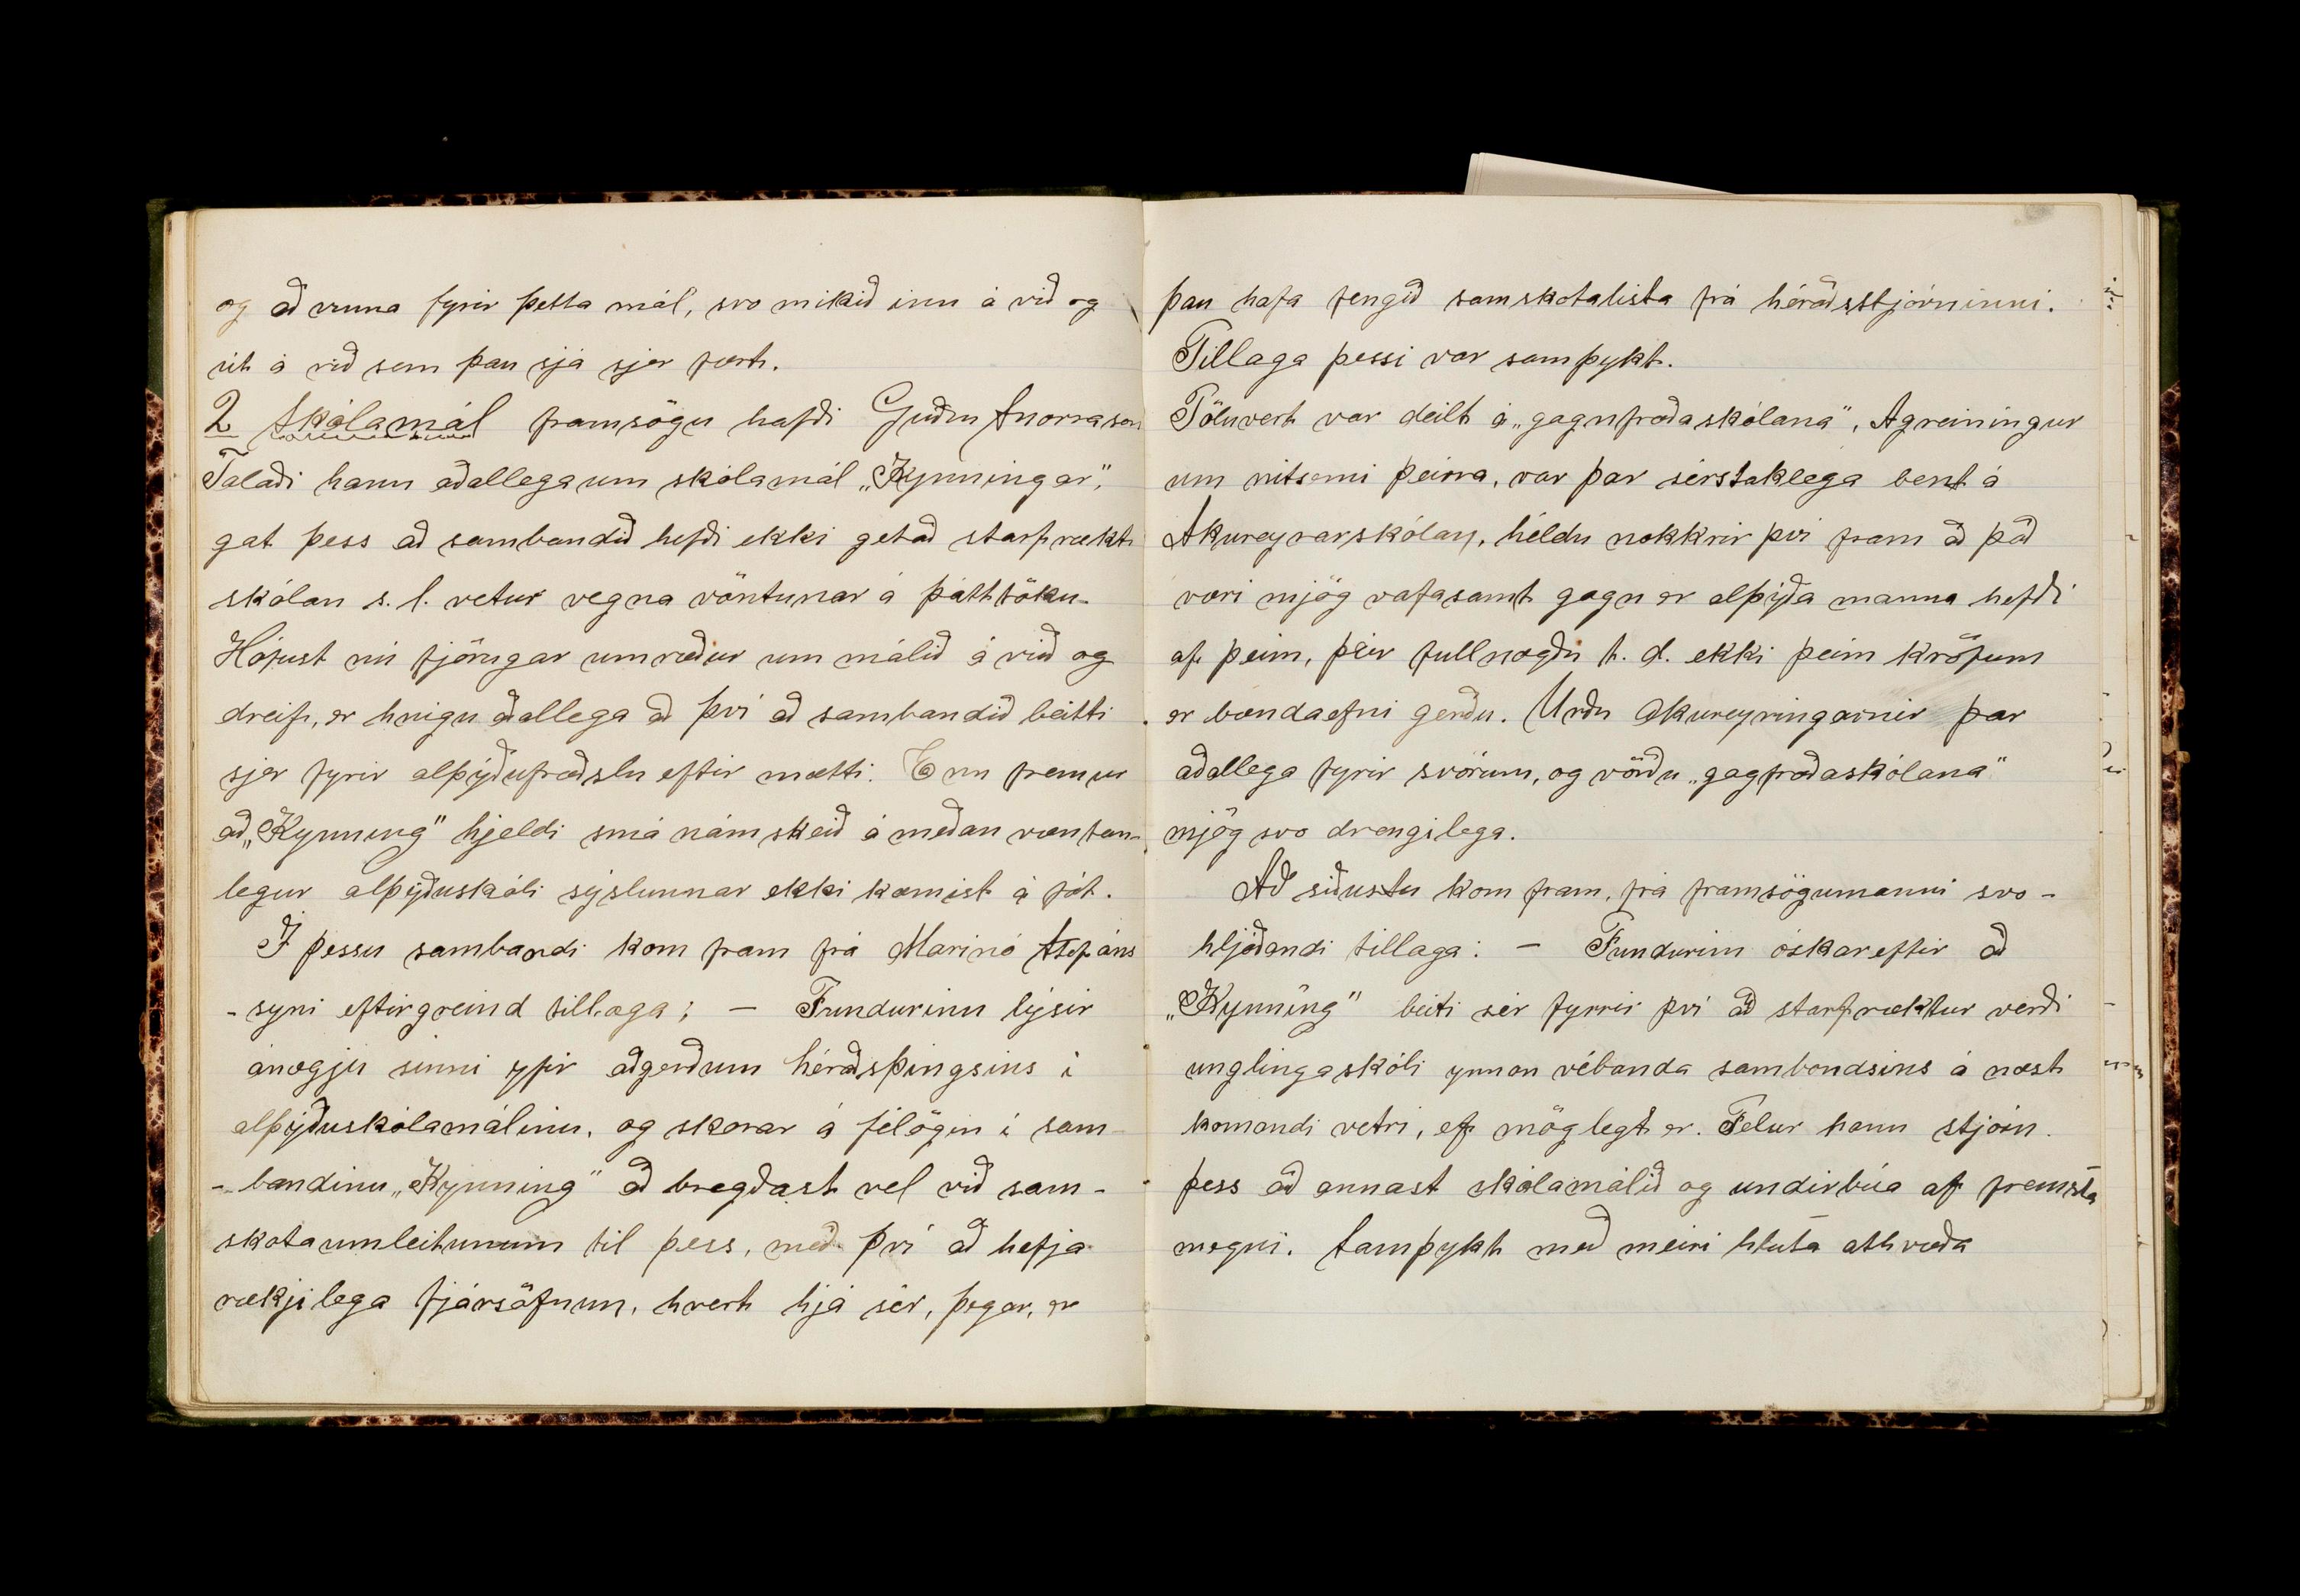 og að vinna fyrir þetta mál, svo mikið inn á við og
út á við sem þau sjá sjer fært.
2 Skólamál framsögu hafði Guðm Snorrason
Talaði hann aðallega um skólamál „Kynningar",
gat þess að sambandið hefði ekki getað starfrækt
skólan s. l. vetur vegna vöntunar á þátttöku.
Hófust nú fjörugar umræður um málið á við og
dreif, er hnigu aðallega að því að sambandið beitti
sjer fyrir alþýðufræðslu eftir mætti. Enn fremur
að „Kynning" hjeldi smá námskeið á meðan væntan-
legur alþýðuskóli sýslunnar ekki kæmist á fót.
Í þessu sambandi kom fram frá Marinó Stefáns
- syni eftirgreind tillaga; — Fundurinn lýsir
ánægju sinni yfir aðgerðum héraðsþingsins í
alþýðuskólamálinu, og skorar á félögin í sam-
- bandinu „Kynning" að bregðast vel við sam-
skotaumleitunum til þess, með því að hefja
rækjilega fjársöfnun, hvert hjá sér, þegar, er
þau hafa fengið samskotalista frá héraðsstjórninni.
Tillaga þessi var samþykt.
Töluvert var deilt á „gagnfræðaskólana", Agreiningur
um nitsemi þeirra, var þar sérstaklega bent á
Akureyrarskólan, héldu nokkrir því fram að það
væri mjög vafasamt gagn er alþýða manna hefði
af þeim, þeir fullnægðu t. d. ekki þeim kröfum
er bændaefni gerðu. Urðu Akureyringarnir þar
aðallega fyrir svörum, og vörðu „gagfræðaskólana"
mjög svo drengilega.
Að síðustu kom fram, frá framsögumanni svo-
hljóðandi tillaga: — Fundurinn óskar eftir að
„Kynning" beiti sér fyrrir því að starfræktur verði
unglingaskóli ynnan vébanda sambandsins á næst
komandi vetri, ef möglegt er. Felur hann stjórn.
þess að annast skólamálið og undirbúa af fremsta
megni. Samþykt með meiri hluta athvæða